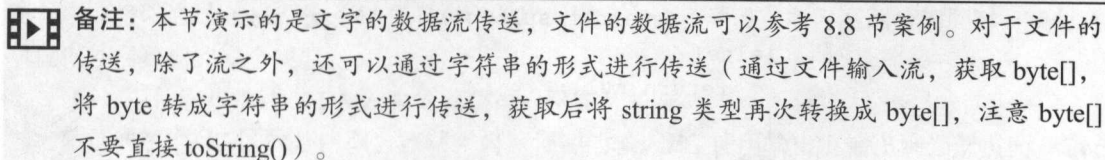 备注：本节演示的是文字的数据流传送，文件的数据流可以参考 8.8 节案例。对于文件的
传送，除了流之外，还可以通过字符串的形式进行传送（通过文件输入流，获取 byte[]，
将 byte 转成字符串的形式进行传送，获取后将 string 类型再次转换成 byte[]，注意 byte[]
不要直接 toString()）。